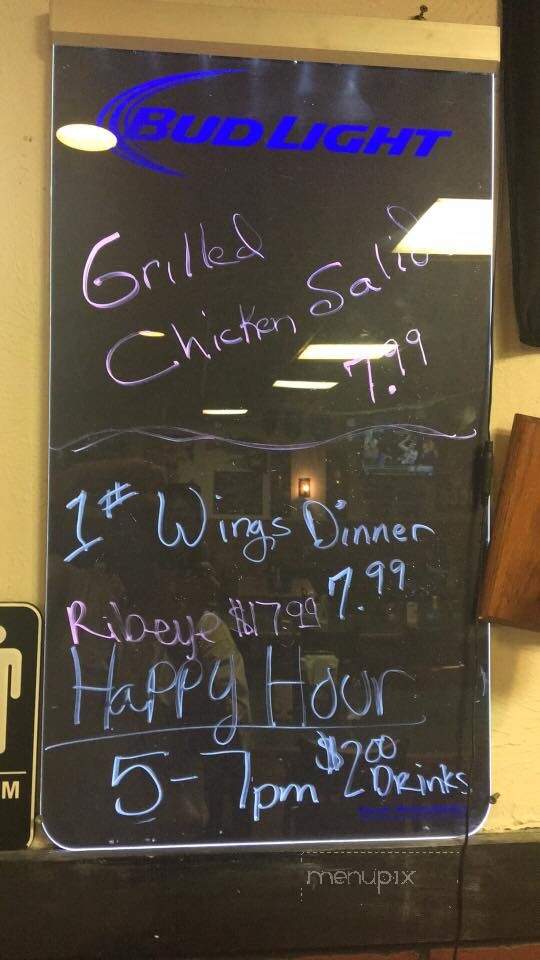 BUD LIGHT
Grilled
Chicken Salid
7.99
1# Wings Dinner
7.99
Ribeye $17.99
Happy Hour
5-7pm $2.00 Drinks
M
menupix